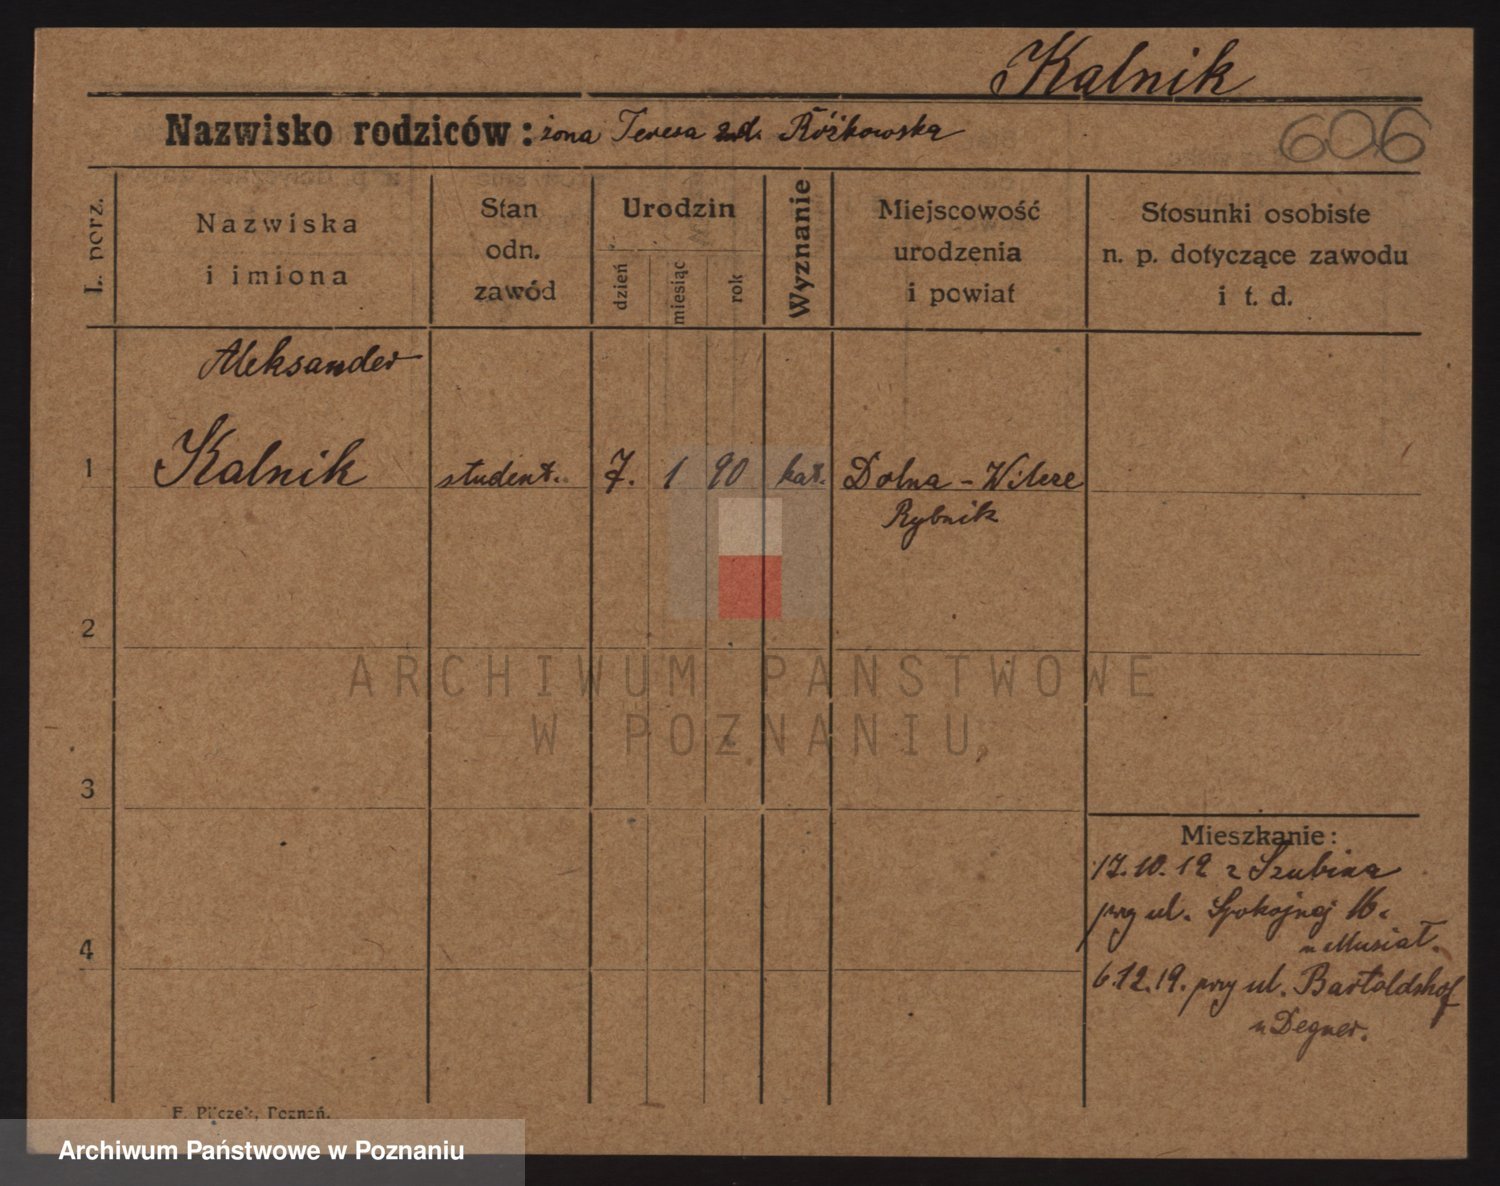 Kalnik
Nazwisko rodziców: żona Teresa zd. Różkowska
606
L. porz.
Nazwiska
i imiona
Stan
odn.
zawód
Urodzin
dzień
miesiąc
rok
Wyznanie
Miejscowość
urodzenia
i powiat
Stosunki osobiste
n. p. dotyczące zawodu
i t. d.
Aleksander
1 Kalnik student. 7. 1 90 kat. Dolna - Wilcze
Rybnik
2
ARCHIWUM PAŃSTWOWE
W POZNANIU
3
Mieszkanie:
17.10.19 z Szubina
przy ul. Spokojnej 16.
u Musiał.
4
6.12.19. przy ul. Bartoldshof
u Degner.
F. Pilczek, Poznań.
Archiwum Państwowe w Poznaniu